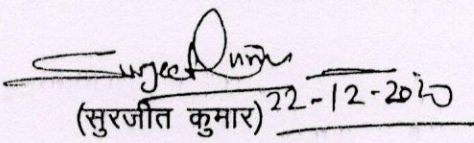 Surjeet Kumar
(सुरजीत कुमार) 22-12-2020